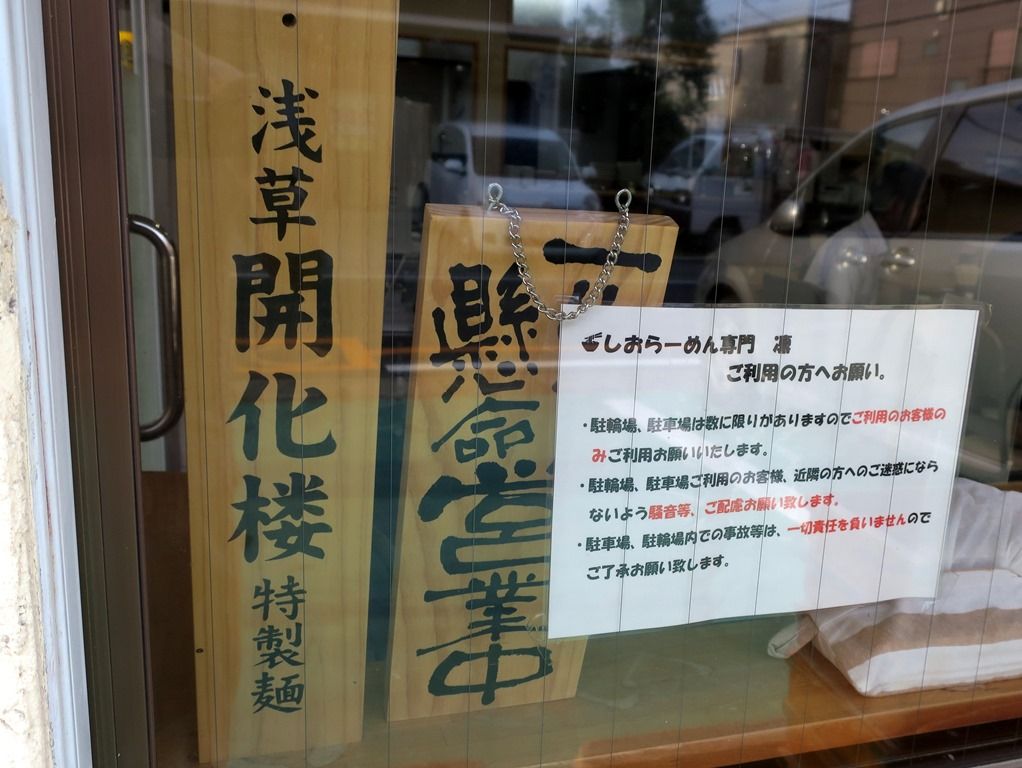 浅草開化楼特製麺
一
懸命営業中
しおらーめん専門 凛
ご利用の方へお願い。
・駐輪場、駐車場は数に限りがありますのでご利用のお客様の
みご利用お願いいたします。
・駐輪場、駐車場ご利用のお客様、近隣の方へのご迷惑になら
ないよう騒音等、ご配慮お願い致します。
・駐車場、駐輪場内での事故等は、一切責任を負いませんので
ご了承お願い致します。